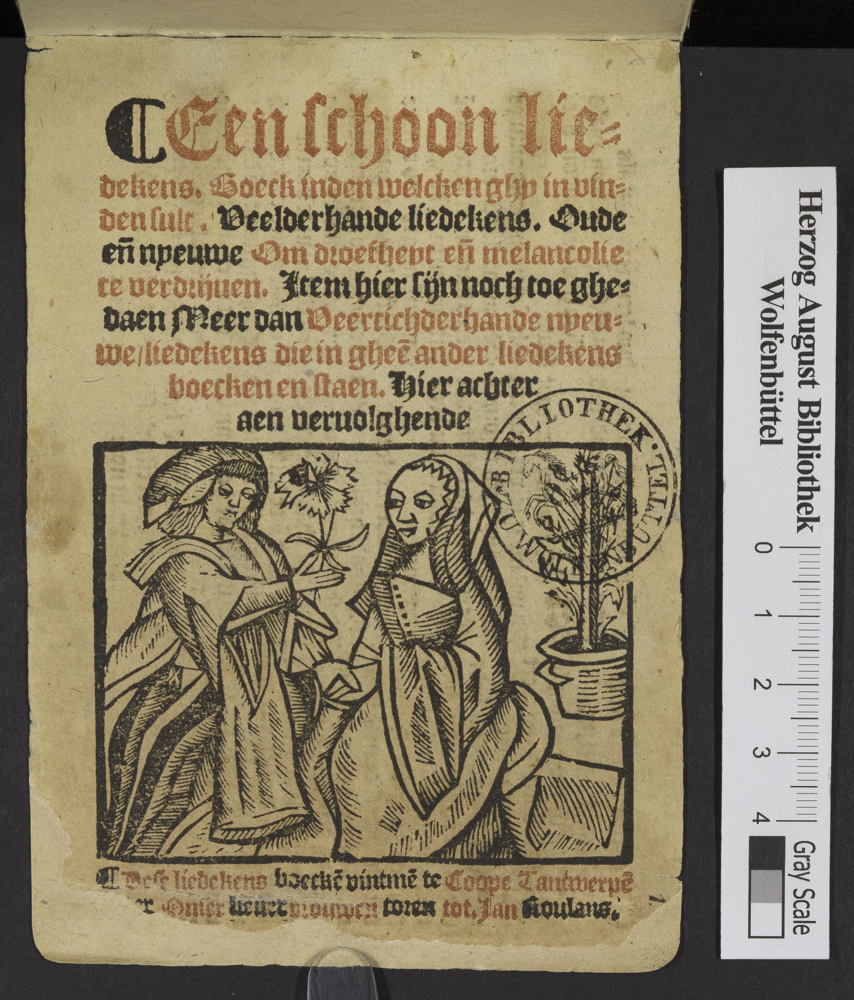 Een schoon lie=
dekens. Boeck inden welcken ghy in vin=
den sult. Veelderhande liedekens. Oude
en̄ nyeuwe Om droefheyt en̄ melancolie
te verdrijuen. Item hier sijn noch toe ghe=
daen Meer dan Veertichderhande nyeu=
we/liedekens die in gheē ander liedekens
boecken en staen. Hier achter
aen veruolghende
BIBLIOTHEK
Dese liedekens boeckē vintmē te Coope Tantwerpē
er Onser lieuer vrouwen toren tot. Jan Roulans.
1
Herzog August Bibliothek
Wolfenbüttel
0 1 2 3 4
Gray Scale